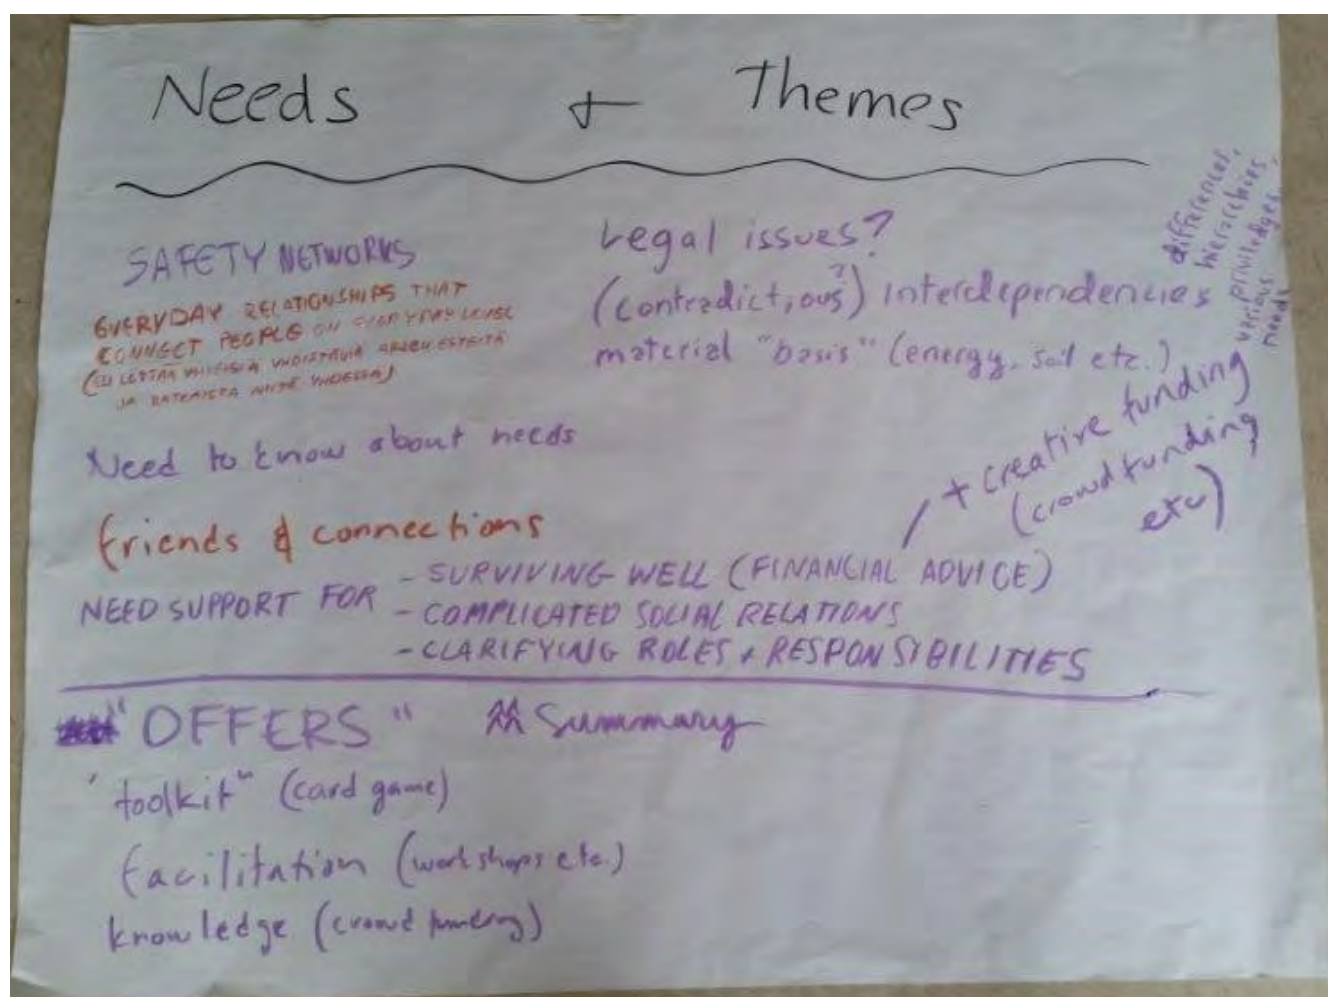 Needs + Themes
SAFETY NETWORKS
EVERYDAY RELATIONSHIPS THAT
CONNECT PEOPLE ON EVERYDAY LEVEL
JA NIITÄ YHDESSÄ)
Need to know about needs
friends & connections
NEED SUPPORT FOR
- SURVIVING WELL (FINANCIAL ADVICE)
- COMPLICATED SOCIAL RELATIONS
- CLARIFYING ROLES + RESPONSIBILITIES
Legal issues?
(contradictious?) interdependencies
differences,
hierarchies,
priviledges,
various
needs
material "basis" (energy, soil etc.)
+ creative funding
(crowdfunding
etc)
"OFFERS" Summary
"toolkit" (card game)
facilitation (workshops etc.)
knowledge (crowd funding)